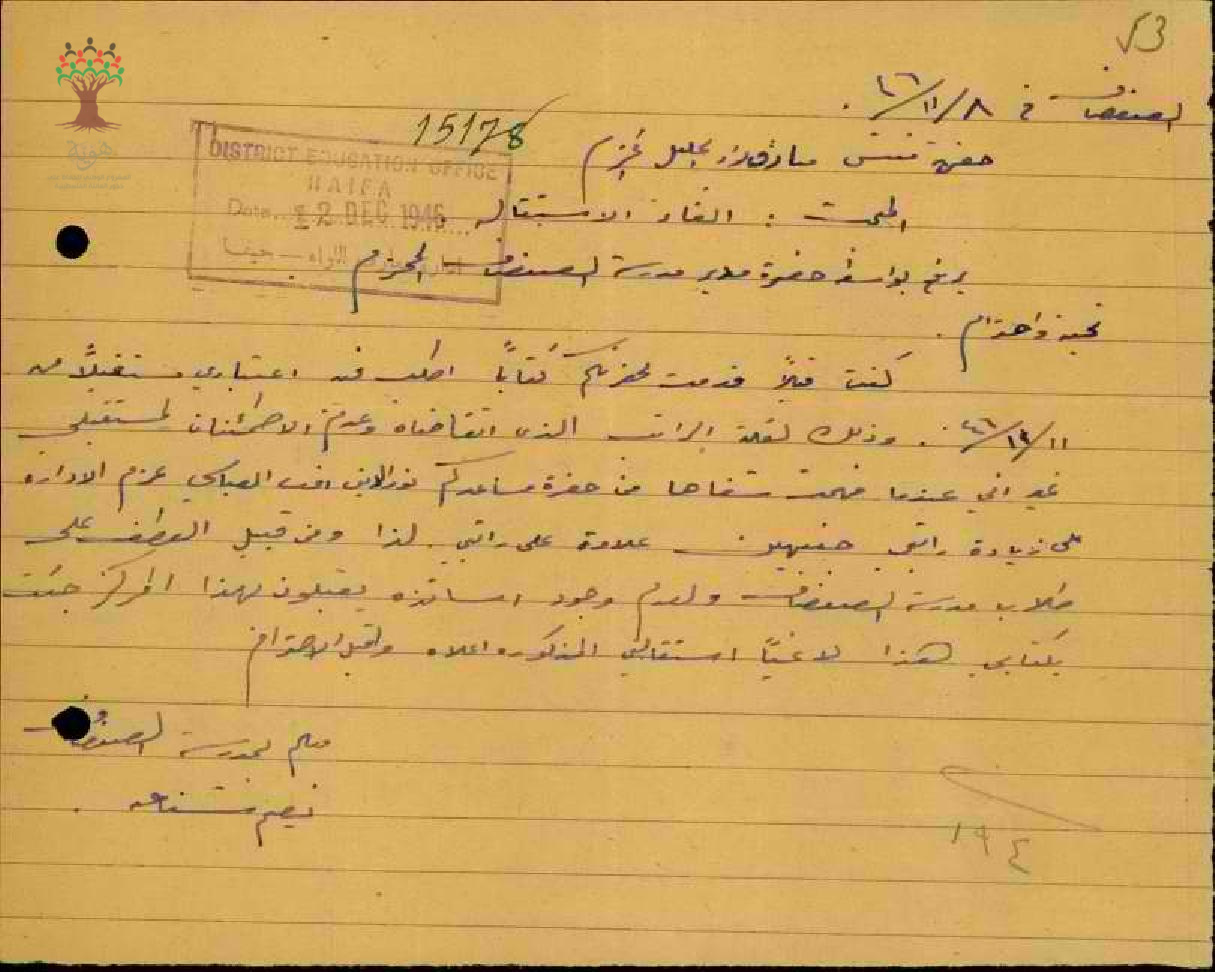 √3
الصفصاف في ٨/١١/٤٦ .
15178
DISTRICT EDUCATION OFFICE
HAIFA
Date... 12 DEC 1946 ...
حيفا
حضرة مفتش معارف لواء الجليل المحترم
المبحث : الغاء الاستقالة
يرفع بواسطة حضرة مدير مدرسة الصفصاف المحترم
تحية واحترام .
كنت قبلاً قدمت لحضرتكم كتاباً اطلب فيه اعتباري مستقيلاً من
١١/١٢/٤٦ . وذلك لقلة الراتب الذي اتقاضاه وعدم الاطمئنان لمستقبلي
غير اني عندما فهمت شفاها من حضرة مساعدكم نور الدين افندي العباسي عزم الادارة
على زيادة راتبي جنيهين علاوة على راتبي . لذا ومن قبيل العطف على
طلاب مدرسة الصفصاف ولعدم وجود اساتذه يقبلون بهذا المركز جئت
بكتابي هذا لاغياً استقالتي المذكوره اعلاه واقبلوا الاحترام
معلم بمدرسة الصفصاف
نعيم
١٩٤
هوية